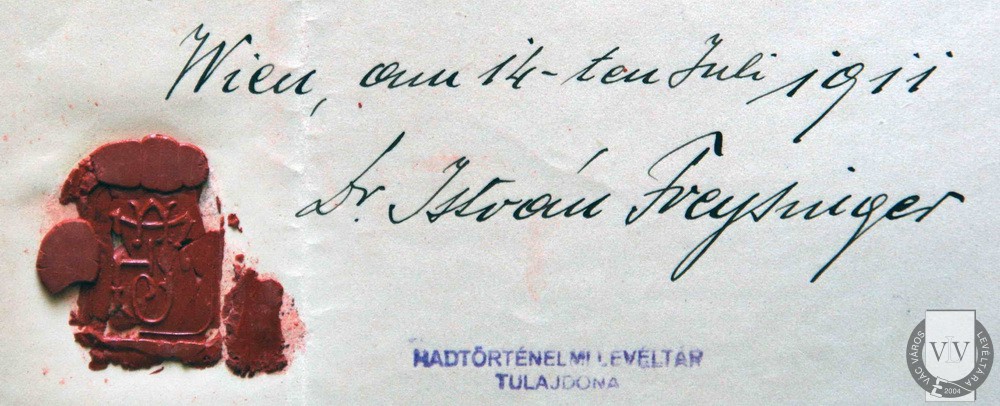 Wien, am 14-ten Juli 1911
Dr. István Freysinger
HADTÖRTÉNELMI LEVÉLTÁR
TULAJDONA
VÁC VÁROS LEVÉLTÁRA
VV
2004